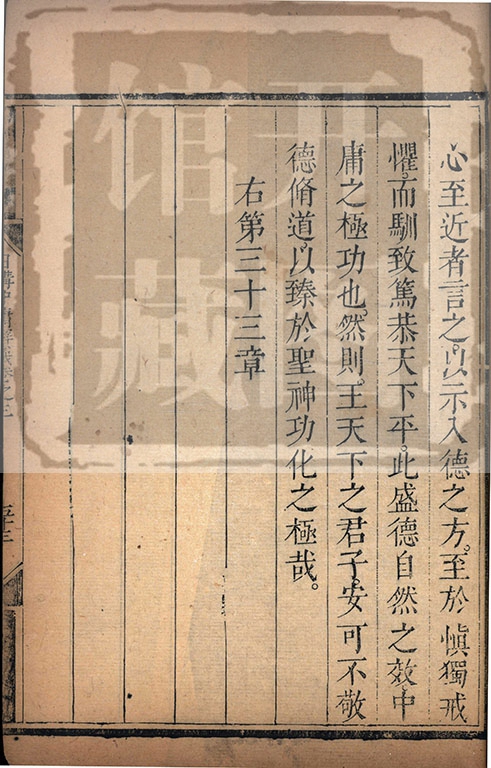 心至近者言之。以示入德之方。至於愼獨戒
懼。而馴致篤恭天下平。此盛德自然之效中
庸之極功也。然則。王天下之君子。安可不敬
德脩道。以臻於聖神功化之極哉。
右第三十三章